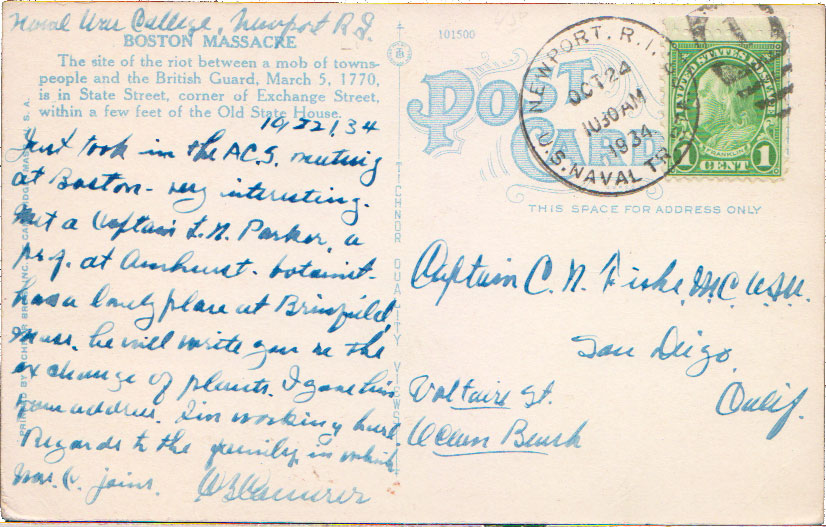 Naval War College, Newport R.I.
BOSTON MASSACRE
The site of the riot between a mob of towns-
people and the British Guard, March 5, 1770,
is in State Street, corner of Exchange Street,
within a few feet of the Old State House.
10/22/34
Just took in the A.C.S. meeting
at Boston - very interesting.
Met a Captain L.N. Parker, a
prof. at Amhurst - botanist -
has a lovely place at Brimfield,
Mass. he will write you re the
exchange of plants. I gave him
your address. Im working hard.
Regards to the family in which
Mrs. C. joins.
TICHNOR QUALITY VIEWS
101500
POST
CARD
NEWPORT, R.I.
OCT 24
10 30 AM
1934
U.S. NAVAL TR.
UNITED STATES POSTAGE
FRANKLIN
1 CENT 1
THIS SPACE FOR ADDRESS ONLY
Captain C. N. Fiske, M.C. U.S.N.
San Diego
Calif.
Voltaire St.
Ocean Beach